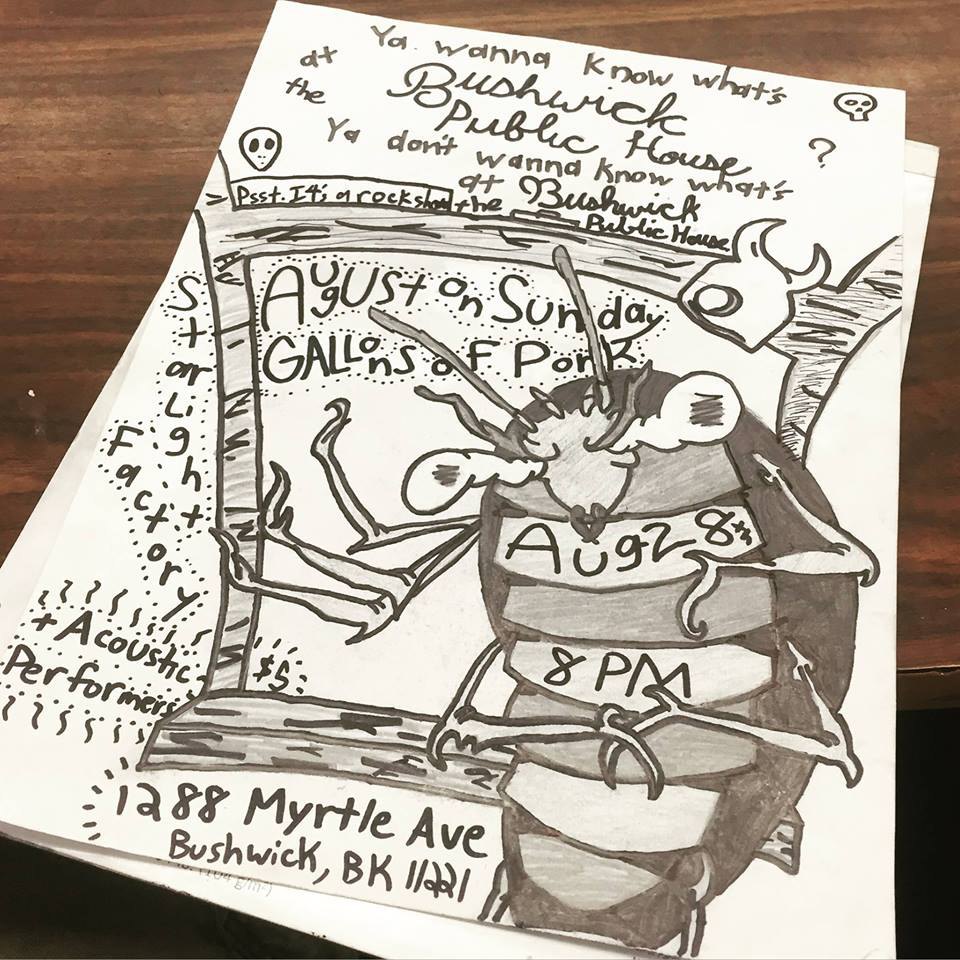 Ya wanna know what's
at
the
Bushwick
Public House
?
Ya don't wanna know what's
at
the
Bushwick
Public House
Psst. It's a rock show
August on Sunday
GALLONS OF Pork
StarLight
Factory
+ Acoustic
Performers
$5
Aug 28th
8 PM
1288 Myrtle Ave
Bushwick, BK 11221